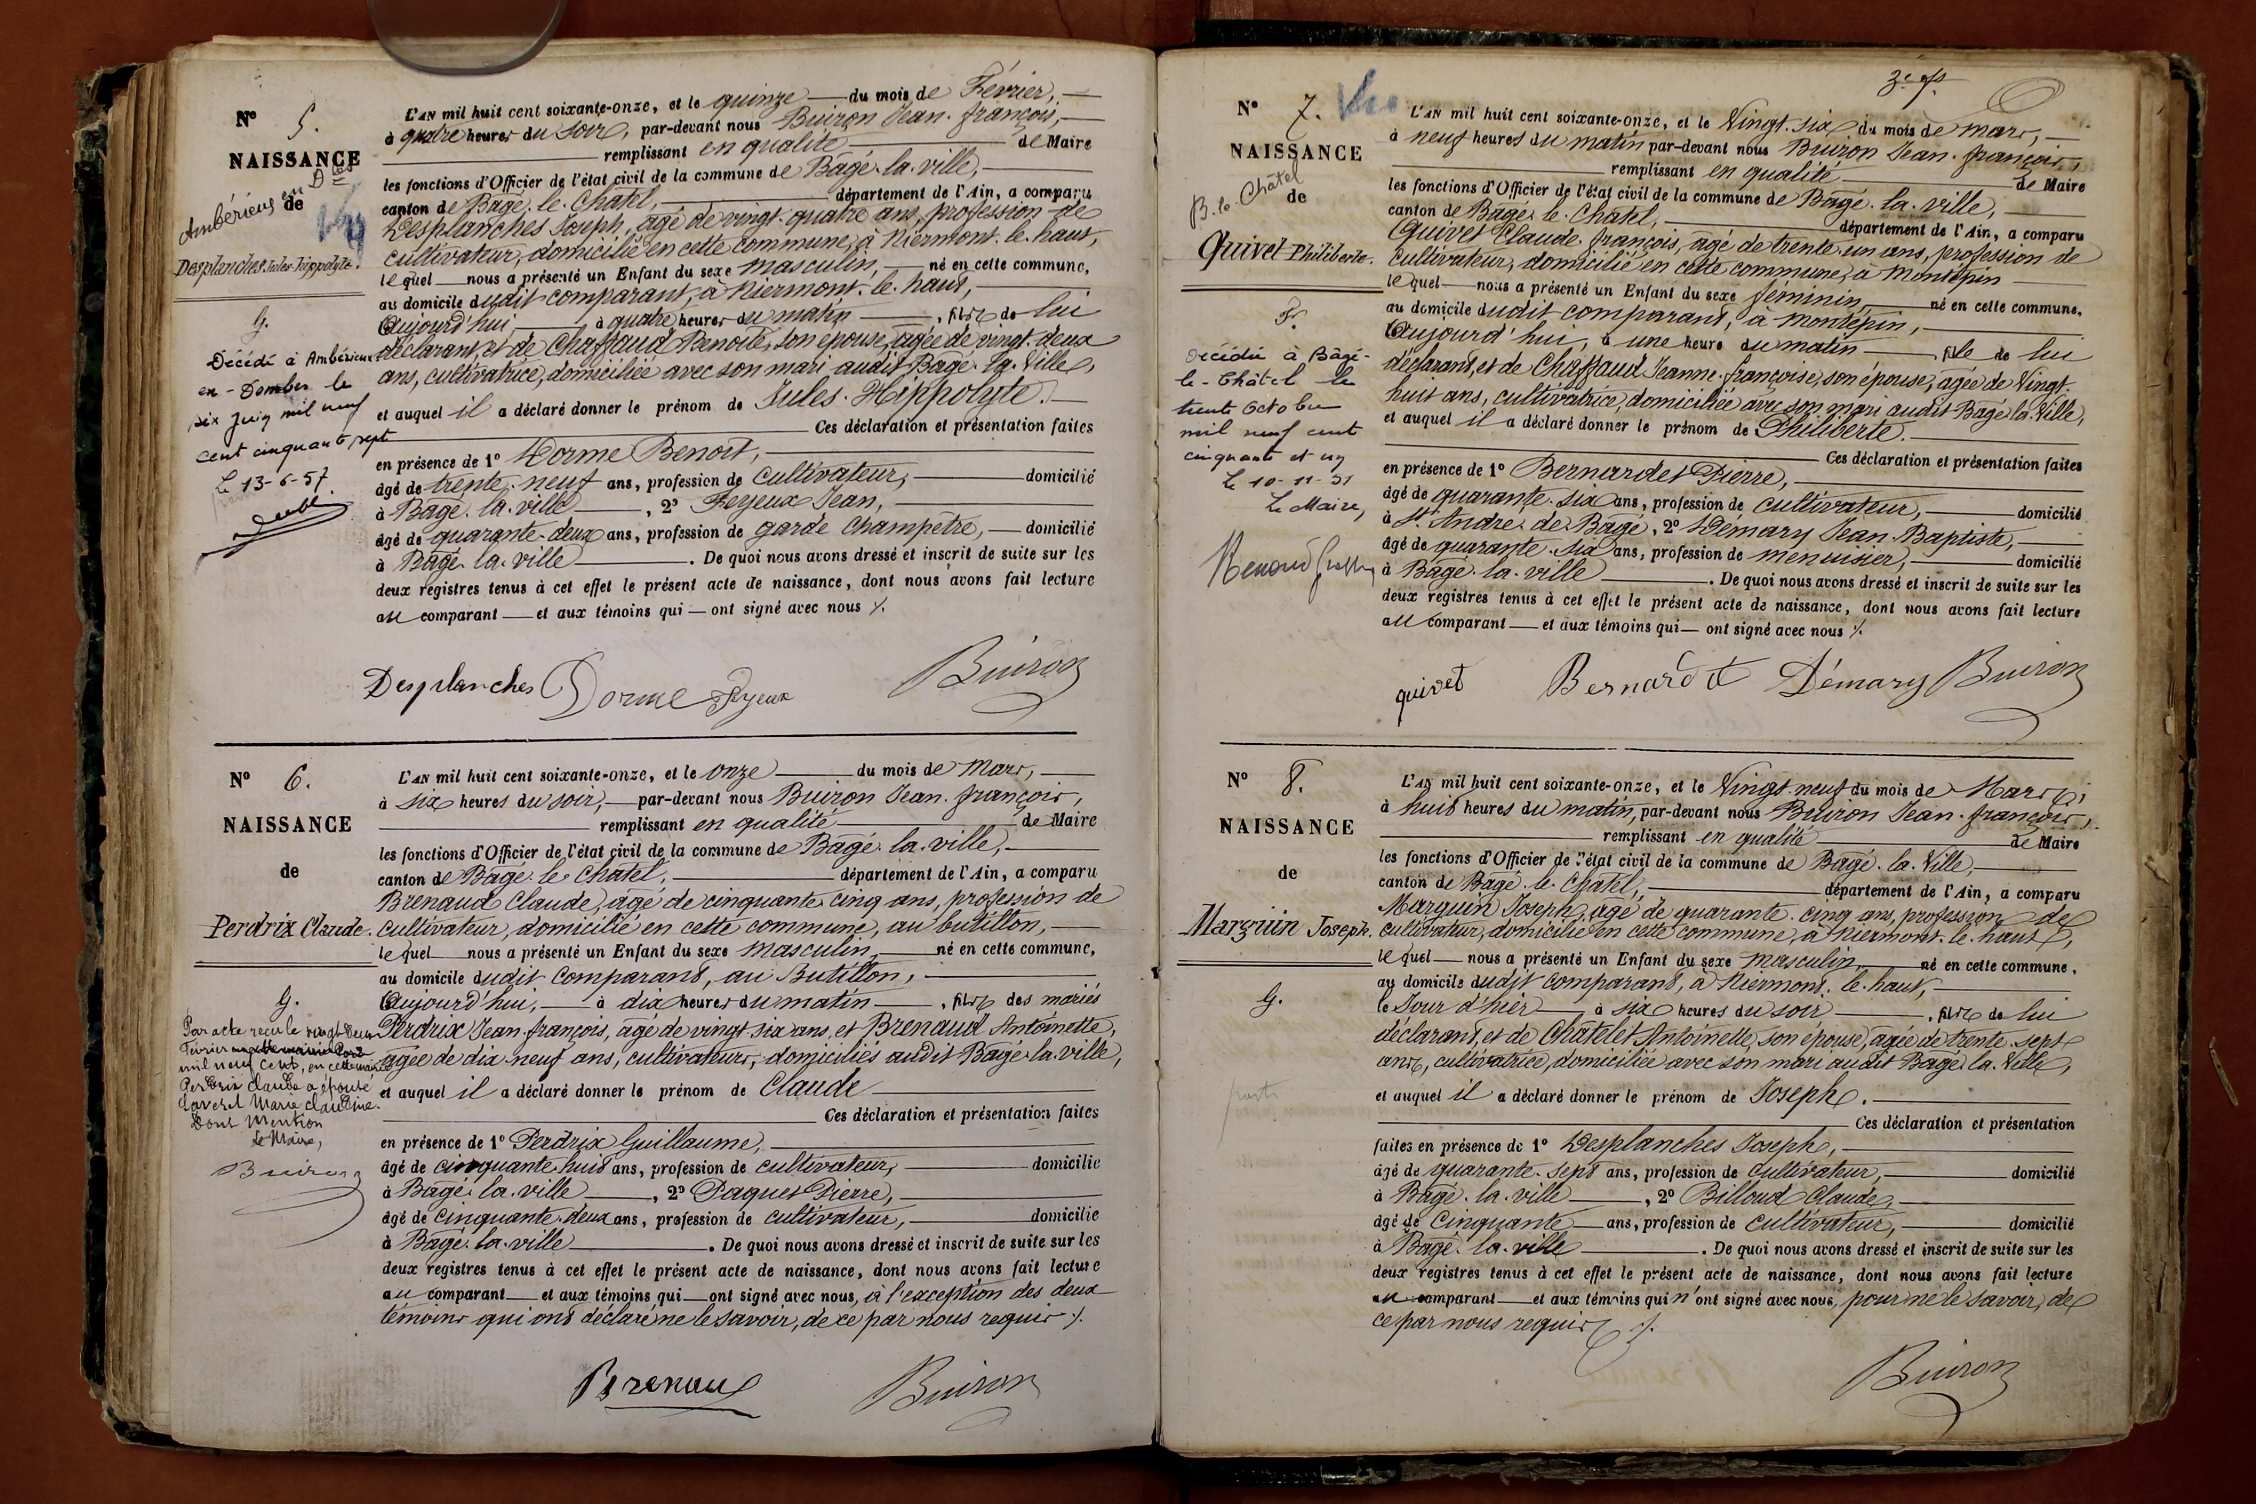 N° 5.
NAISSANCE
Ambérieux en D<sup>bes</sup>
de
Desplanches Jules-hippolyte.
G.
Décédé à Ambérieux
en-Dombes le
six Juin mil neuf
cent cinquante sept
Le 13-6-57.
L'AN mil huit cent soixante-onze, et le quinze du mois de Février,
à quatre heures du soir, par-devant nous Buiron Jean-françois,
remplissant en qualité de Maire
les fonctions d'Officier de l'état civil de la commune de Bâgé-la-ville,
canton de Bâgé-le-Châtel, département de l'Ain, a comparu
Desplanches Joseph, âgé de vingt-quatre ans, profession de
cultivateur, domicilié en cette commune, à Niermont-le-haut,
lequel nous a présenté un Enfant du sexe masculin, né en cette commune,
au domicile dudit comparant, à Niermont-le-haut,
Aujourd'hui, à quatre heures du matin, fils de lui
déclarant, et de Chaffaud Benoite, son épouse, âgée de vingt-deux
ans, cultivatrice, domiciliée avec son mari audit Bâgé-la-Ville,
et auquel il a déclaré donner le prénom de Jules-Hippolyte.
Ces déclaration et présentation faites
en présence de 1° Dorme Benoit,
âgé de trente-neuf ans, profession de cultivateur, domicilié
à Bâgé-la-ville, 2° Feyeux Jean,
âgé de quarante-deux ans, profession de garde champêtre, domicilié
à Bâgé-la-ville. De quoi nous avons dressé et inscrit de suite sur les
deux registres tenus à cet effet le présent acte de naissance, dont nous avons fait lecture
au comparant et aux témoins qui ont signé avec nous ./.
Desplanches Dorme Feyeux Buiron
N° 6.
NAISSANCE
de
Perdrix Claude.
G.
Par acte reçu le vingt deux
Février
mil neuf cent, en cette mairie
Perdrix claude a épousé
Laverel Marie claudine.
Dont Mention
Le Maire,
Buiron
L'AN mil huit cent soixante-onze, et le onze du mois de Mars,
à six heures du soir, par-devant nous Buiron Jean-françois,
remplissant en qualité de Maire
les fonctions d'Officier de l'état civil de la commune de Bâgé-la-ville,
canton de Bâgé-le-Châtel, département de l'Ain, a comparu
Brenaud Claude, âgé de cinquante-cinq ans, profession de
cultivateur, domicilié en cette commune, au butillon,
lequel nous a présenté un Enfant du sexe masculin, né en cette commune,
au domicile dudit comparant, au Butillon,
Aujourd'hui, à dix heures du matin, fils des mariés
Perdrix Jean-françois, âgé de vingt-six ans, et Brenaud Antoinette,
âgée de dix-neuf ans, cultivateurs, domiciliés audit Bâgé-la-ville,
et auquel il a déclaré donner le prénom de Claude
Ces déclaration et présentation faites
en présence de 1° Perdrix Guillaume,
âgé de cinquante-huit ans, profession de cultivateur, domicilié
à Bâgé-la-ville, 2° Paquet Pierre,
âgé de cinquante-deux ans, profession de cultivateur, domicilié
à Bâgé-la-ville. De quoi nous avons dressé et inscrit de suite sur les
deux registres tenus à cet effet le présent acte de naissance, dont nous avons fait lecture
au comparant et aux témoins qui ont signé avec nous, à l'exception des deux
témoins qui ont déclaré ne le savoir, de ce par nous requis ./.
Brenaud Buiron
N° 7.
NAISSANCE
B.-le-Châtel
de
Quivet Philiberte.
F.
Décédée à Bâgé-
le-Châtel le
trente octobre
mil neuf cent
cinquante et un
Le 10-11-51
Le Maire,
L'AN mil huit cent soixante-onze, et le Vingt-six du mois de mars,
à neuf heures du matin par-devant nous Buiron Jean-françois,
remplissant en qualité de Maire
les fonctions d'Officier de l'état civil de la commune de Bâgé-la-ville,
canton de Bâgé-le-Châtel, département de l'Ain, a comparu
Quivet Claude-françois, âgé de trente-un ans, profession de
cultivateur, domicilié en cette commune, à Montépin
lequel nous a présenté un Enfant du sexe féminin, né en cette commune,
au domicile dudit comparant, à Montépin,
Aujourd'hui, à une heure du matin, fille de lui
déclarant, et de Chaffaud Jeanne-françoise, son épouse, âgée de Vingt-
huit ans, cultivatrice, domiciliée avec son mari audit Bâgé-la-Ville,
et auquel il a déclaré donner le prénom de Philiberte.
Ces déclaration et présentation faites
en présence de 1° Bernardet Pierre,
âgé de quarante-six ans, profession de cultivateur, domicilié
à St. André-de-Bâgé, 2° Démary Jean-Baptiste,
âgé de quarante-six ans, profession de menuisier, domicilié
à Bâgé-la-ville. De quoi nous avons dressé et inscrit de suite sur les
deux registres tenus à cet effet le présent acte de naissance, dont nous avons fait lecture
au comparant et aux témoins qui ont signé avec nous ./.
quivet Bernardet Démary Buiron
N° 8.
NAISSANCE
de
Marguin Joseph.
G.
L'AN mil huit cent soixante-onze, et le Vingt-neuf du mois de Mars,
à huit heures du matin, par-devant nous Buiron Jean-françois,
remplissant en qualité de Maire
les fonctions d'Officier de l'état civil de la commune de Bâgé-la-Ville,
canton de Bâgé-le-Châtel, département de l'Ain, a comparu
Marguin Joseph, âgé de quarante-cinq ans, profession de
cultivateur, domicilié en cette commune, à Niermont-le-haut,
lequel nous a présenté un Enfant du sexe masculin, né en cette commune,
au domicile dudit comparant, à Niermont-le-haut,
le Jour d'hier à six heures du soir, fils de lui
déclarant, et de Châtelet Antoinette, son épouse, âgée de trente-sept
ans, cultivatrice, domiciliée avec son mari audit Bâgé-la-Ville,
et auquel il a déclaré donner le prénom de Joseph.
Ces déclaration et présentation
faites en présence de 1° Desplanches Joseph,
âgé de quarante-sept ans, profession de cultivateur, domicilié
à Bâgé-la-ville, 2° Billoud Claude,
âgé de cinquante ans, profession de cultivateur, domicilié
à Bâgé-la-ville. De quoi nous avons dressé et inscrit de suite sur les
deux registres tenus à cet effet le présent acte de naissance, dont nous avons fait lecture
au comparant et aux témoins qui n'ont signé avec nous, pour ne le savoir, de
ce par nous requis ./.
Buiron